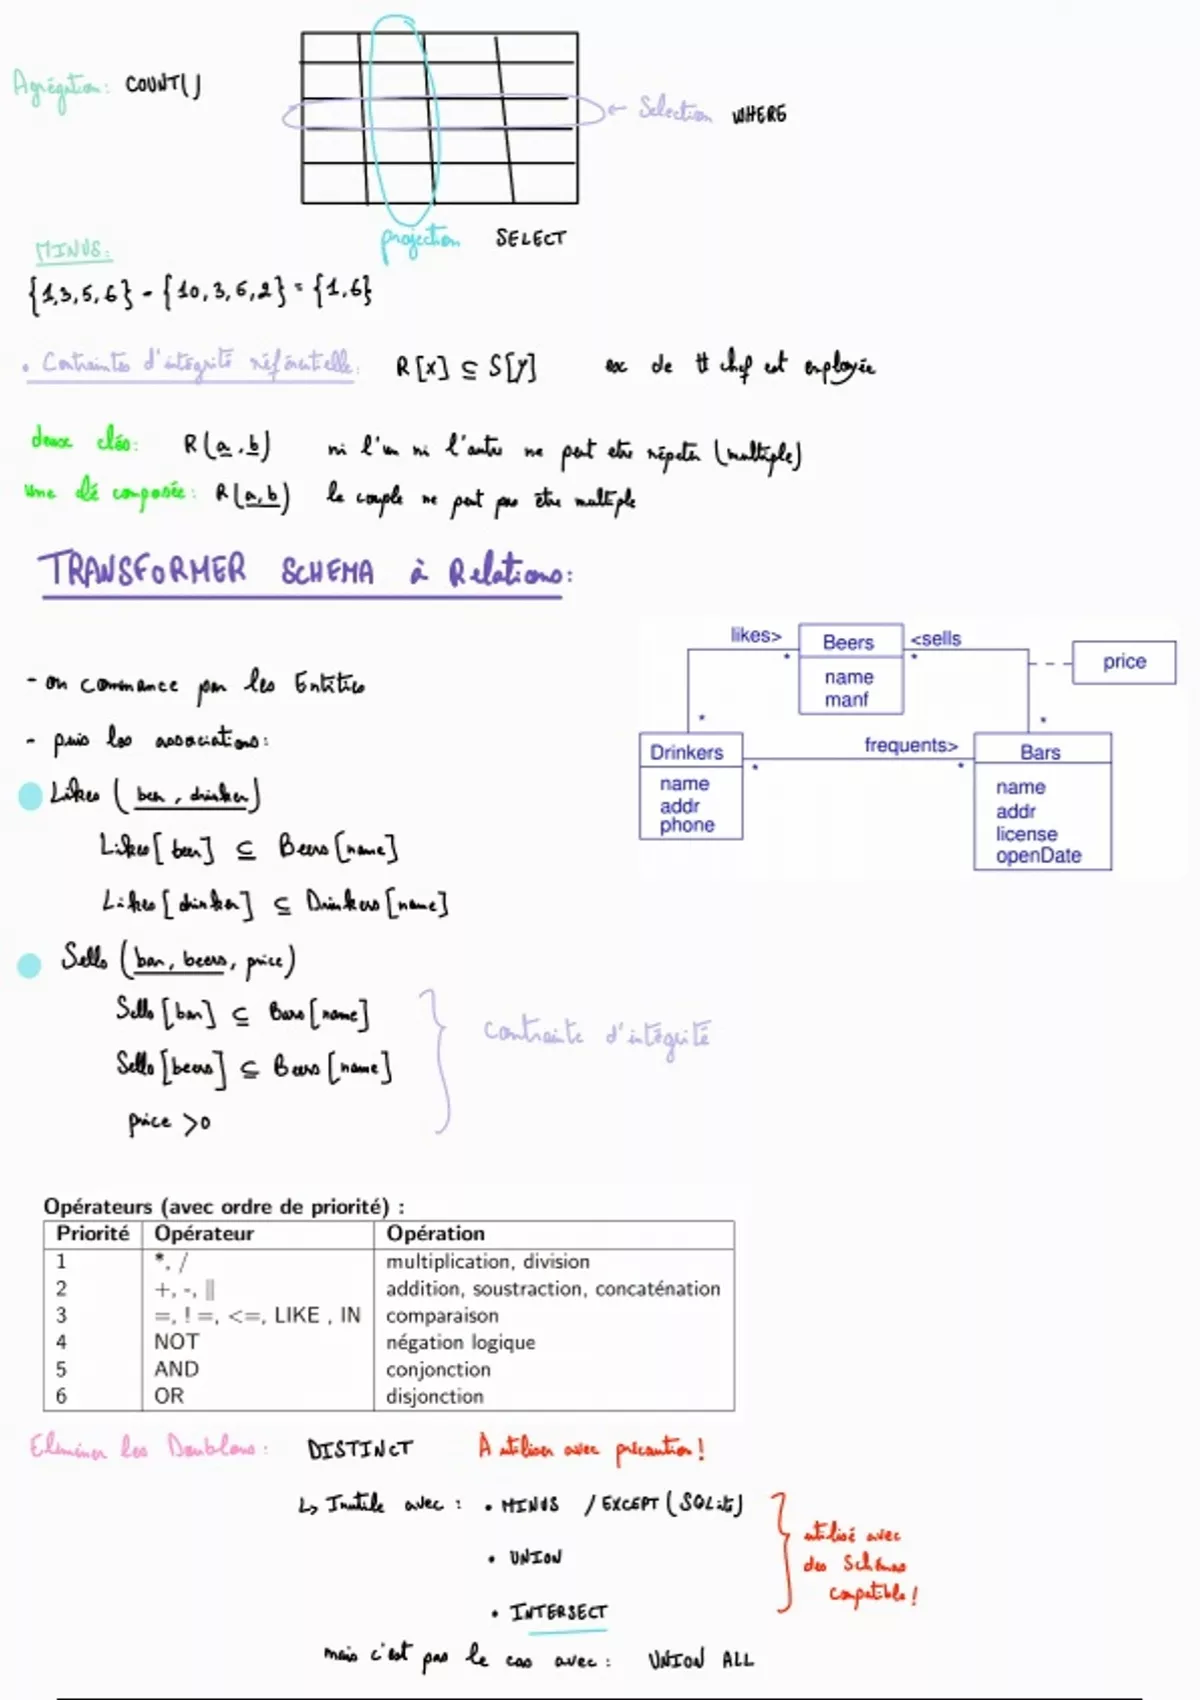 Agrégation: COUNT()
← Selection WHERE
projection SELECT
MINUS:
{1,3,5,6} - {10,3,5,2} = {1,6}
• Contraintes d'intégrité référentielle: R[x] ⊆ S[y] ex de # chef est employée
deux clés: R(a, b) ni l'un ni l'autre ne peut etre répeter (multiple)
une clé composée: R(a,b) le couple ne peut pas être multiple
TRANSFORMER SCHEMA à Relations:
likes> Beers <sells
* * price
name
manf
- on commance par les Entities
- puis les associations:
* *
Drinkers frequents> Bars
* *
name name
addr addr
phone license
openDate
Likes (beer, drinker)
Likes[beer] ⊆ Beers[name]
Likes[drinker] ⊆ Drinkers[name]
Sells (bar, beers, price)
Sells[bar] ⊆ Bars[name]
Sells[beers] ⊆ Beers[name]
contrainte d'intégrité
price >0
Opérateurs (avec ordre de priorité) :
Priorité Opérateur Opération
1 *, / multiplication, division
2 +, -, || addition, soustraction, concaténation
3 =, ! =, <=, LIKE , IN comparaison
4 NOT négation logique
5 AND conjonction
6 OR disjonction
Eliminer les Doublons: DISTINCT A utiliser avec précaution!
↳ Inutile avec : • MINUS / EXCEPT (SQLite)
• UNION
• INTERSECT
utilisé avec
des Schémas
compatible!
mais c'est pas le cas avec: UNION ALL